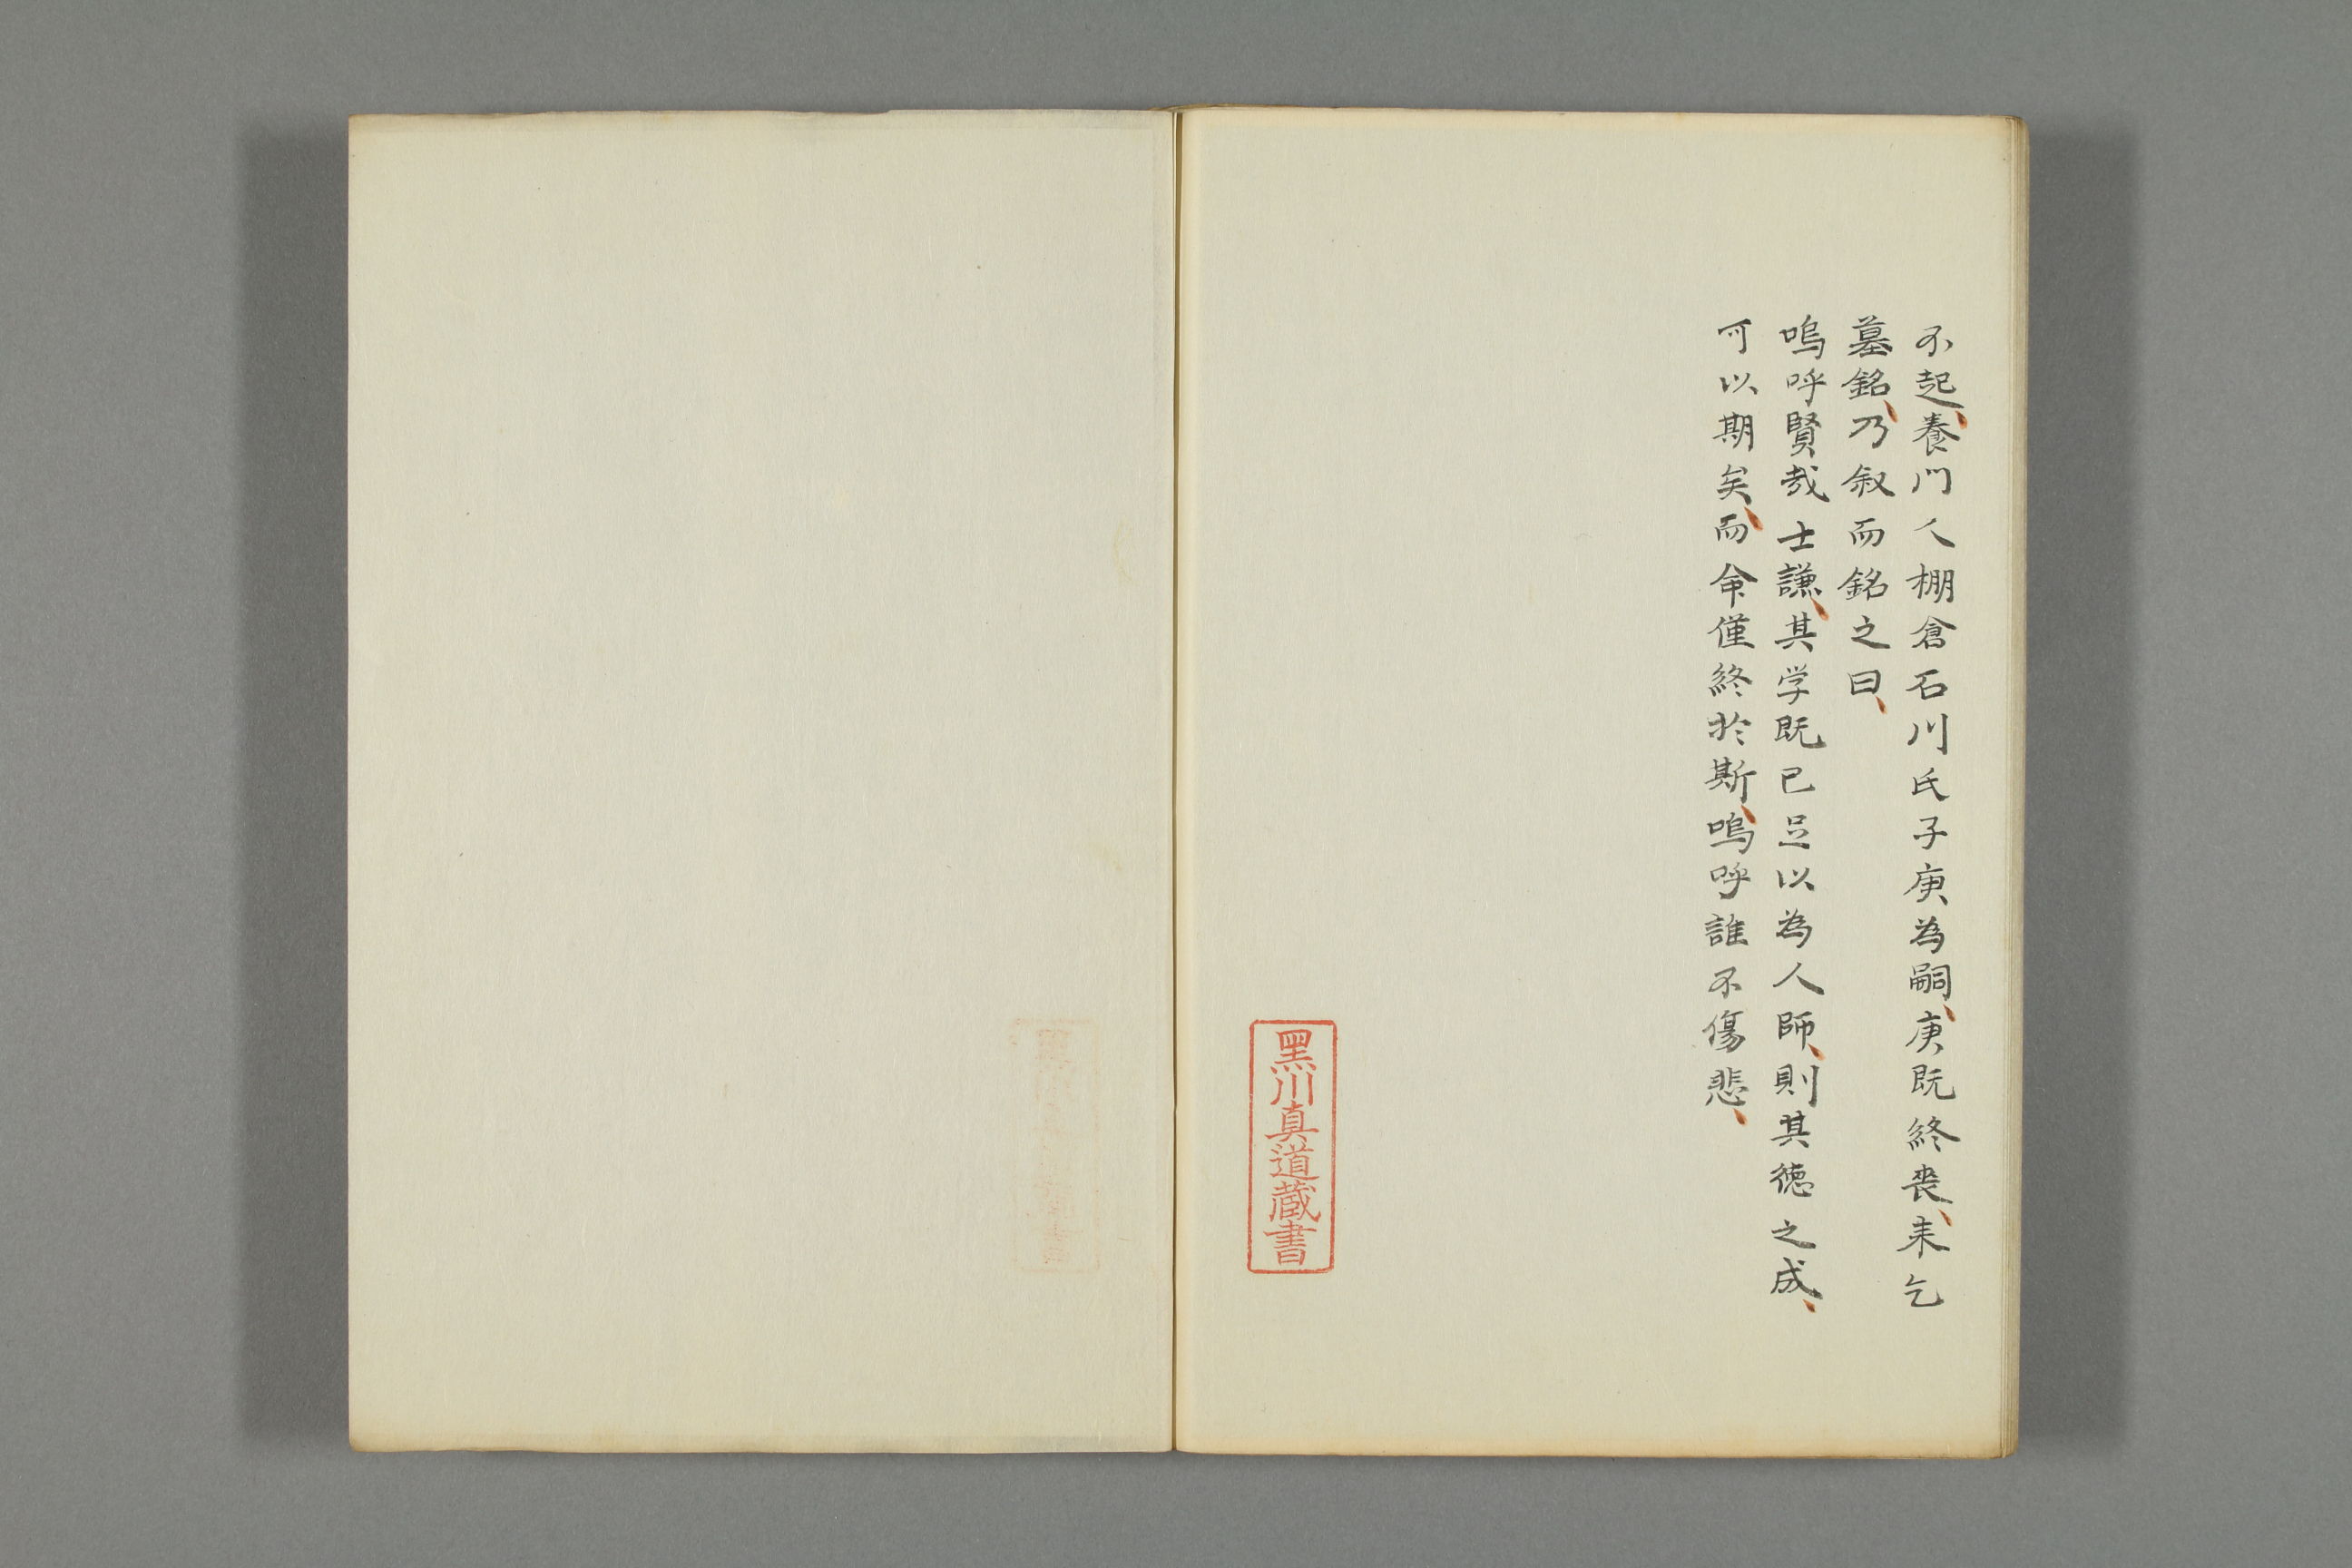 不起、養門人棚倉石川氏子庚為嗣、庚既終喪、来乞
墓銘、乃叙而銘之曰、
嗚呼賢哉士謙、其学既已足以為人師、則其徳之成、
可以期矣、而命僅終於斯、嗚呼誰不傷悲、
黒川真道蔵書